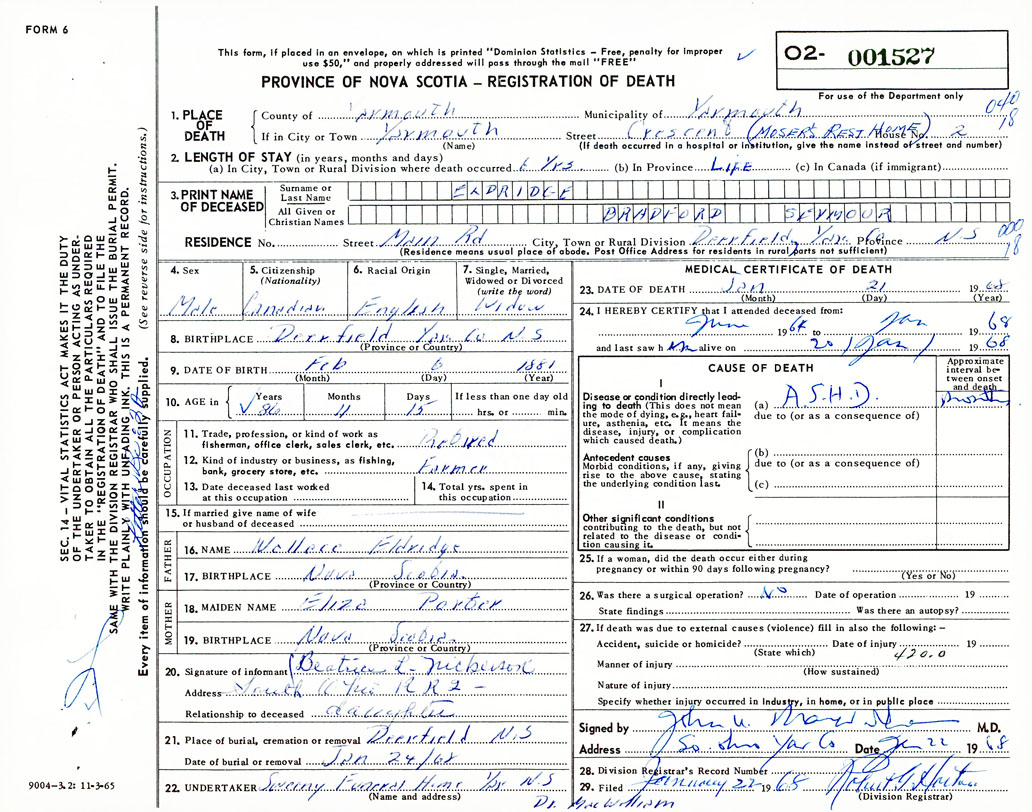 FORM 6
This form, if placed in an envelope, on which is printed "Dominion Statistics – Free, penalty for improper
use $50," and properly addressed will pass through the mail "FREE"
PROVINCE OF NOVA SCOTIA – REGISTRATION OF DEATH
O2- 001527
For use of the Department only
040
18
1. PLACE OF DEATH
County of Yarmouth Municipality of Yarmouth
If in City or Town Yarmouth Street Crescent (MOSER'S REST HOME) House No. 2
(Name) (If death occurred in a hospital or institution, give the name instead of street and number)
2. LENGTH OF STAY (in years, months and days)
(a) In City, Town or Rural Division where death occurred 6 Yrs (b) In Province LIFE (c) In Canada (if immigrant)
3. PRINT NAME OF DECEASED
Surname or Last Name ELDRIDGE
All Given or Christian Names BRADFORD SEYMOUR
RESIDENCE No. Street Main Rd City, Town or Rural Division Deerfield, Yar. Co Province N S
000
18
(Residence means usual place of abode. Post Office Address for residents in rural parts not sufficient)
4. Sex
Male
5. Citizenship
(Nationality)
Canadian
6. Racial Origin
English
7. Single, Married,
Widowed or Divorced
(write the word)
Widow
8. BIRTHPLACE Deerfield Yar Co N S
(Province or Country)
9. DATE OF BIRTH Feb 6 1881
(Month) (Day) (Year)
10. AGE in Years Months Days If less than one day old
86 11 15 hrs. or min.
OCCUPATION
11. Trade, profession, or kind of work as
fisherman, office clerk, sales clerk, etc. Retired
12. Kind of industry or business, as fishing,
bank, grocery store, etc. Farmer
13. Date deceased last worked
at this occupation
14. Total yrs. spent in
this occupation
15. If married give name of wife
or husband of deceased
FATHER
16. NAME Wallace Eldridge
17. BIRTHPLACE Nova Scotia
(Province or Country)
MOTHER
18. MAIDEN NAME Eliza Porter
19. BIRTHPLACE Nova Scotia
(Province or Country)
20. Signature of informant (Beatrice L. Nickerson
Address South Ohio R R 2 –
Relationship to deceased daughter
21. Place of burial, cremation or removal Deerfield N S
Date of burial or removal Jan 24/68
22. UNDERTAKER Sweeny Funeral Home Yar N S
(Name and address)
MEDICAL CERTIFICATE OF DEATH
23. DATE OF DEATH Jan 21 1968
(Month) (Day) (Year)
24. I HEREBY CERTIFY that I attended deceased from:
June 1964 to Jan 1968
and last saw him alive on 20 / Jan / 1968
CAUSE OF DEATH
Approximate
interval be-
tween onset
and death
I
Disease or condition directly lead-
ing to death (This does not mean
the mode of dying, e.g., heart fail-
ure, asthenia, etc. It means the
disease, injury, or complication
which caused death.)
(a) A.S.H.D.
due to (or as a consequence of)
Antecedent causes
Morbid conditions, if any, giving
rise to the above cause, stating
the underlying condition last.
(b)
due to (or as a consequence of)
(c)
II
Other significant conditions
contributing to the death, but not
related to the disease or condi-
tion causing it.
25. If a woman, did the death occur either during
pregnancy or within 90 days following pregnancy?
(Yes or No)
26. Was there a surgical operation? No Date of operation 19
State findings Was there an autopsy?
27. If death was due to external causes (violence) fill in also the following: –
Accident, suicide or homicide? Date of injury 19
(State which) 420.0
Manner of injury
(How sustained)
Nature of injury
Specify whether injury occurred in Industry, in home, or in public place
Signed by M.D.
Address So. Ohio Yar Co Date Jan 22 1968
28. Division Registrar's Record Number
29. Filed January 22 1968
(Division Registrar)
Dr. MacWilliam
SEC. 14 – VITAL STATISTICS ACT MAKES IT THE DUTY
OF THE UNDERTAKER OR PERSON ACTING AS UNDER-
TAKER TO OBTAIN ALL THE PARTICULARS REQUIRED
IN THE "REGISTRATION OF DEATH" AND TO FILE THE
SAME WITH THE DIVISION REGISTRAR WHO SHALL ISSUE THE BURIAL PERMIT.
WRITE PLAINLY WITH UNFADING INK. THIS IS A PERMANENT RECORD.
Every item of information should be carefully supplied. (See reverse side for instructions.)
9004-3.2: 11-3-65